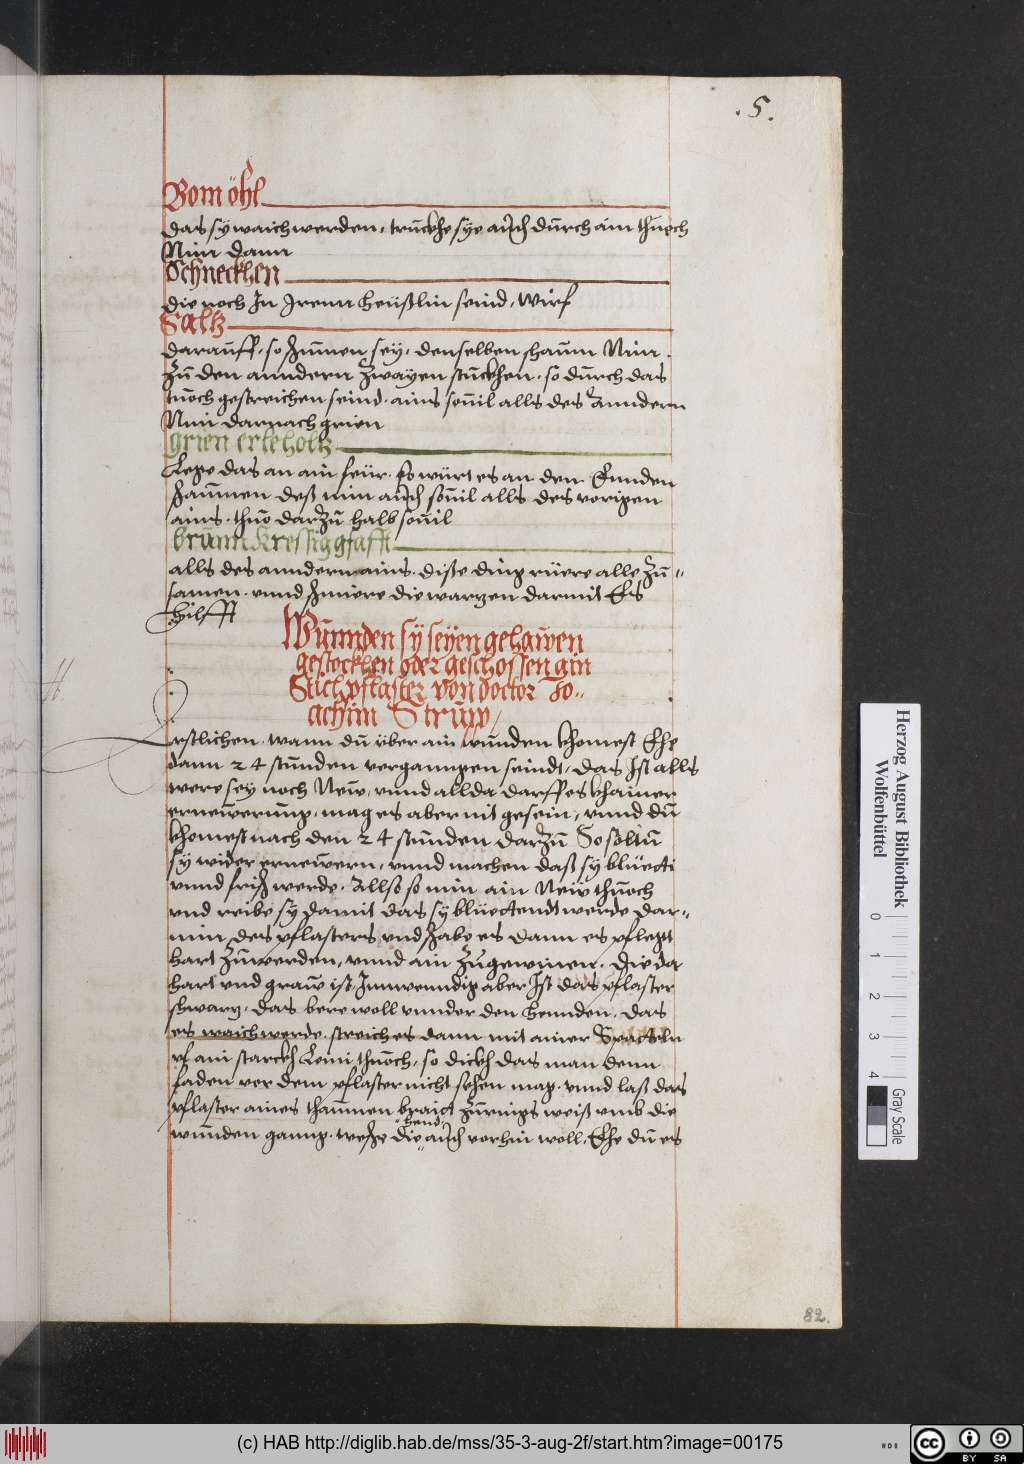 .5.
Bom öhl
das sy waich werden, truckhe sye auch durch ain thuoch
Nim dann
Schneckhen
die noch In Irenn heüßlin seind, wirf
Saltz
darauff, so schaumen sey, denselben schaum Nim
zu den anndern zwayen stuckhen, so durch das
tuoch gestreichen seind, ains souil alls des anndern
Nim darnach grien
grien erleholtz
Lege das an ain feür, so würt es an den Ennden
schaumen deß nim auch souil alls des vorigen
ains, thuo darzu halb souil
brunn kressig gsafft
alls des anndern ains, diße ding rüere alle zu=
samen, vnnd schmiere die wartzen darmit Es
hilfft
Wunnden sy seyen gehawen
gestochen oder geschossen ain
Stichpflaster von doctor Jo=
achim Strupp
Erstlichen, wann du über ain wunden khomest Ehe
dann 24 stunden verganngen seindt, das Ist alls
were sey noch New, vnnd allda darff es khainer
ernewerung, mag es aber nit gesein, vnnd du
khomest nach den 24 stunden darzu So soltu
sy wider ernewern, vnnd machen daß sy blüecti
vnnd frisch werde, Allso so nim ain New thuoch
vnd reibe sy damit das sy blüettendt werde dar=
nim des pflasters vnd schabe es dann es pflegt
hart zuwerden, vnnd ain zugewinen, die da
hart vnd graw ist, Innwenndig aber Ist das pflaster
schwartz, das bere woll vnnder den hennden, das
es waich werde, streich es dann mit ainer Spatteln
vf ain starckh Leini thuoch, so dickh das man denn
faden vor dem pflaster nicht sehen mag, vnnd laß das
pflaster aines thaumen braidt zurings weiß vmb die
hend
wunden ganng, wesche die auch vorhin woll, Ehe du es
82.
Herzog August Bibliothek
Wolfenbüttel
0 1 2 3 4
Gray Scale
(c) HAB http://diglib.hab.de/mss/35-3-aug-2f/start.htm?image=00175
cc BY SA